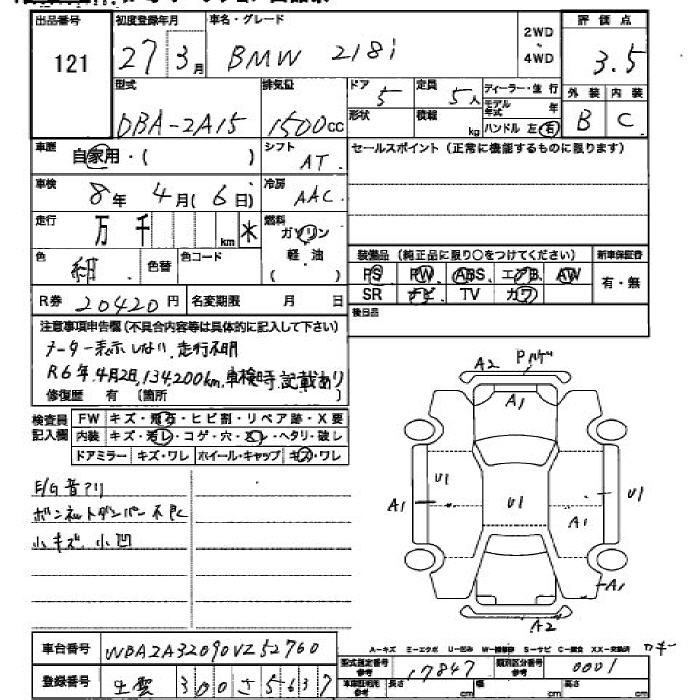 出品番号 初度登録年月 車名・グレード 2WD 4WD 評価点
121 27 3月 BMW 218i 3.5
外装 内装
B C
型式 排気量 ドア 定員 ディーラー・並行
DBA-2A15 1500cc 5 5人 モデル年式 年
形状 積載 kg ハンドル 左・右
車歴 自家用・( ) シフト AT
セールスポイント (正常に機能するものに限ります)
車検 8年4月(6日) 冷房 AAC
走行 万 千 km ✳ 燃料 ガソリン
軽油
( )
色 紺 色替 色コード
装備品 (純正品に限り○をつけてください) 新車保証書
PS PW ABS エアB AW 有・無
SR ナビ TV カワ
R券 20420円 名変期限 月 日
後日品
注意事項申告欄(不具合内容等は具体的に記入して下さい)
メーター表示しない、走行不明
R6年4月2日,134,200km,車検時記載あり
修復歴 有 (箇所 )
検査員記入欄
FW キズ・飛石・ヒビ割・リペア跡・X要
内装 キズ・汚レ・コゲ・穴・スレ・ヘタリ・破レ
ドアミラー キズ・ワレ ホイール・キャップ キズ・ワレ
E/G音アリ
ボンネットダンパー不良
小キズ、小凹
A2 Pハゲ
A1
U1 U1 U1
A1 A1
A1
A2
車台番号 WBA2A32090VZ52760
登録番号 出雲 300 さ 5637
A-キズ E-エクボ U-凹み W-補修跡 S-サビ C-腐食 XX-交換済
型式指定番号 参考 17847 類別区分番号 参考 0001
車庫証明用 参考 長さ cm 幅 cm 高さ cm